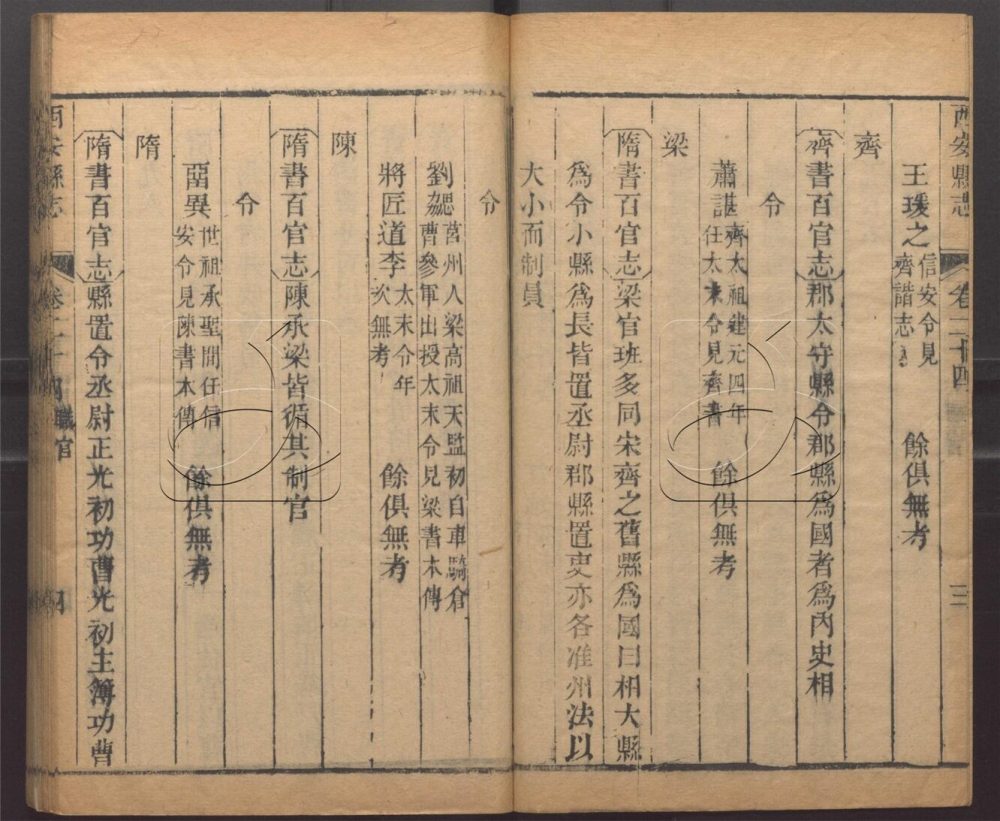 西安縣志 卷二十四 三
王瑗之 信安令見
齊諧志 餘俱無考
齊
齊書百官志 郡太守縣令郡縣為國者為內史相
令
蕭諶 齊太祖建元四年
任太末令見齊書 餘俱無考
梁
隋書百官志 梁官班多同宋齊之舊縣為國曰相大縣
為令小縣為長皆置丞尉郡縣置吏亦各准州法以
大小而制員
令
劉勰 莒州人梁高祖天監初自車騎倉
曹參軍出授太末令見梁書本傳
將匠道李 太末令年
次無考 餘俱無考
陳
隋書百官志 陳承梁皆循其制官
令
留異 世祖承聖間任信
安令見陳書本傳 餘俱無考
隋
隋書百官志 縣置令丞尉正光初功曹光初主簿功曹
西安縣志 卷二十四 職官